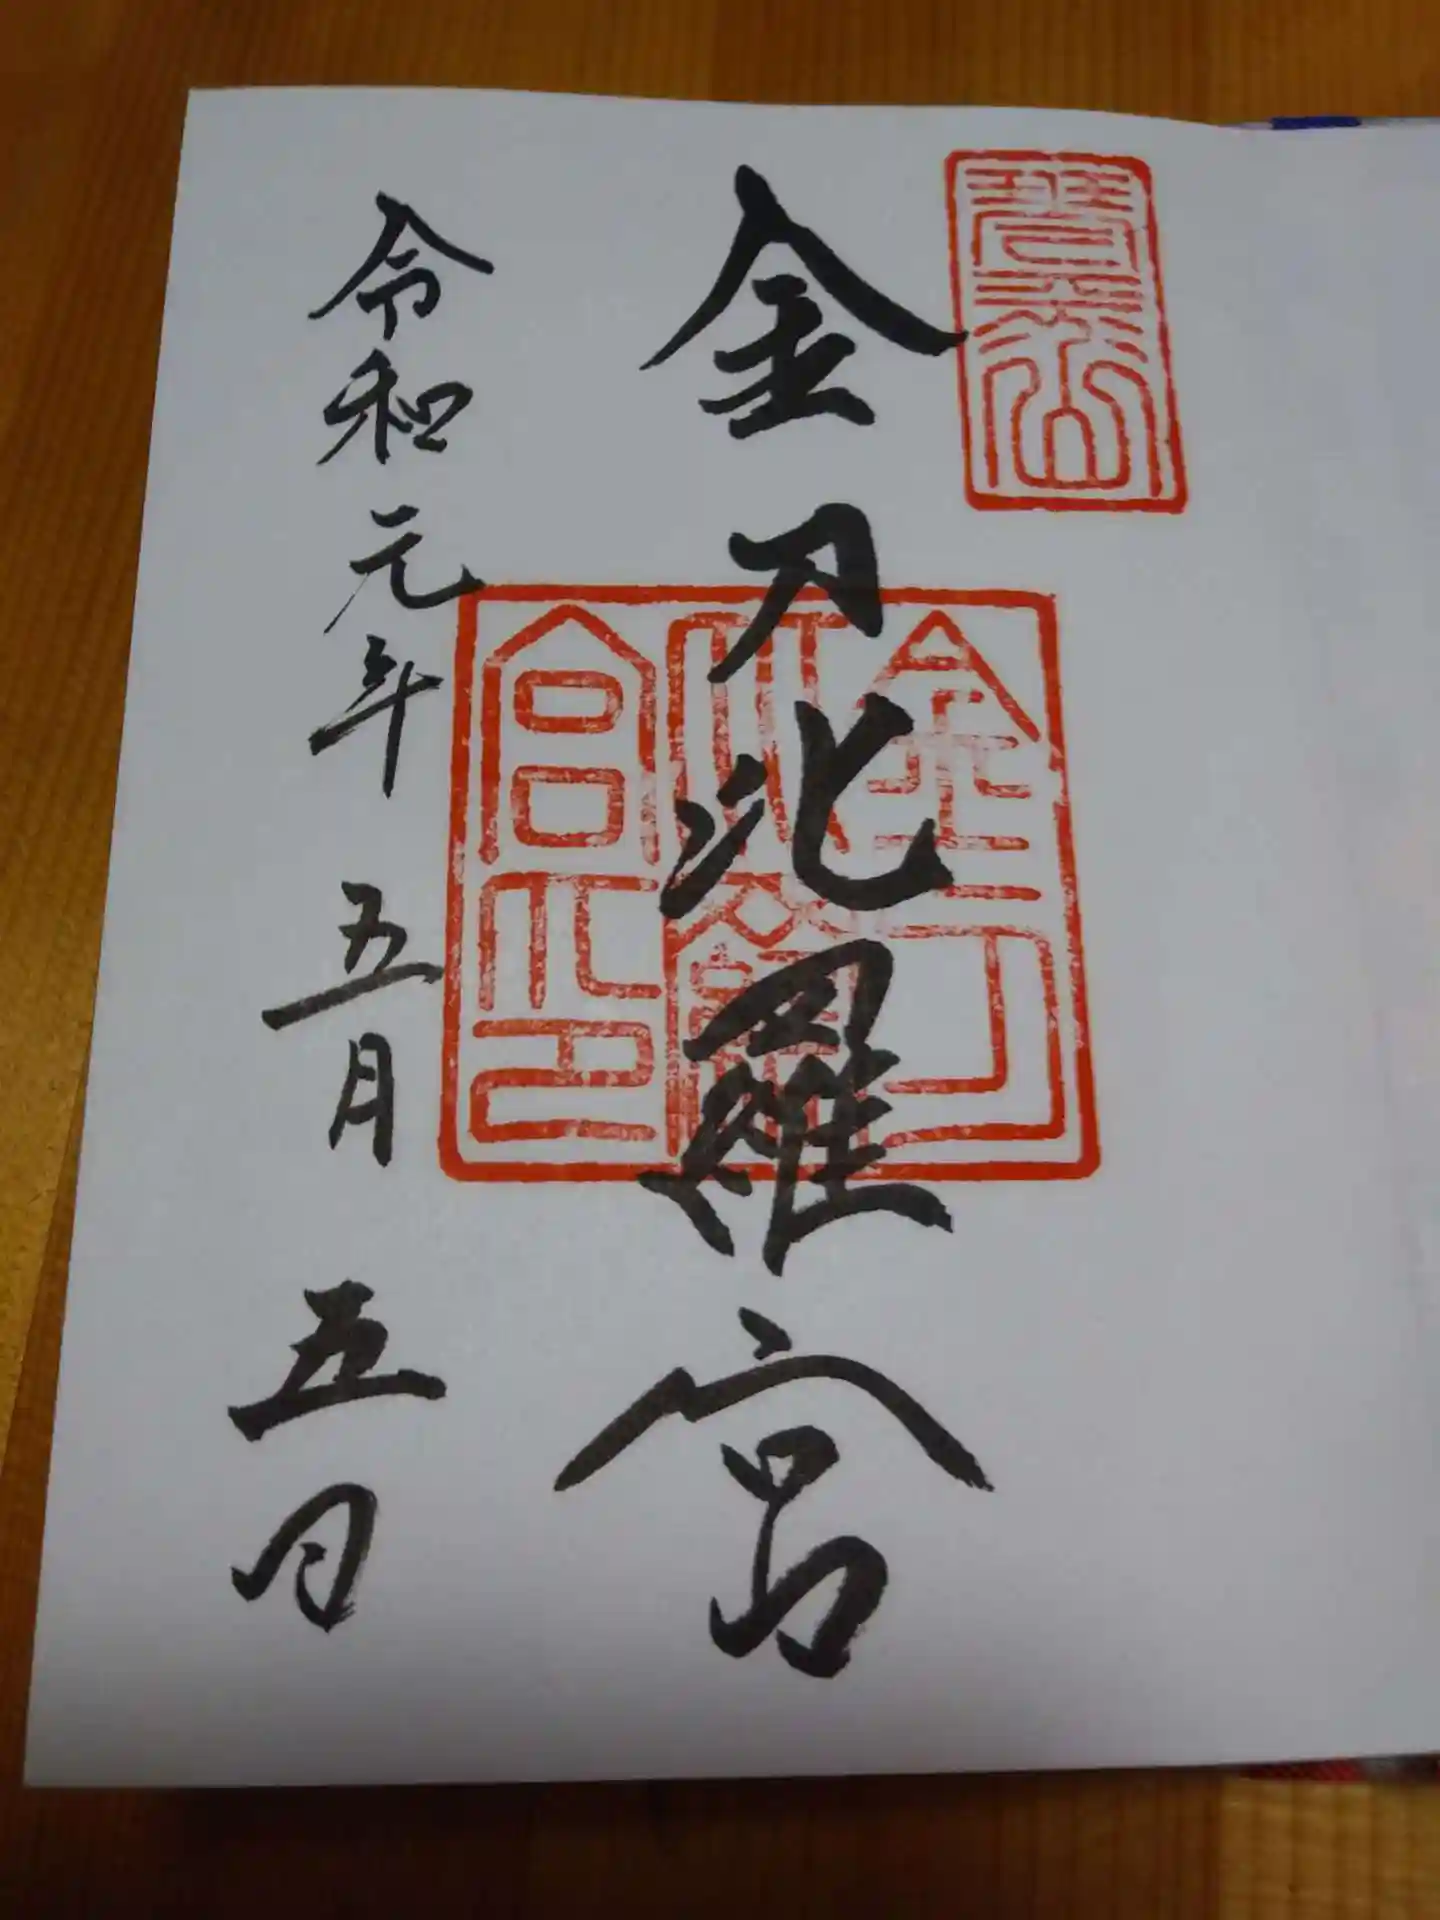 琴平山
金刀比羅宮
金刀比羅宮印
令和元年 五月 五日